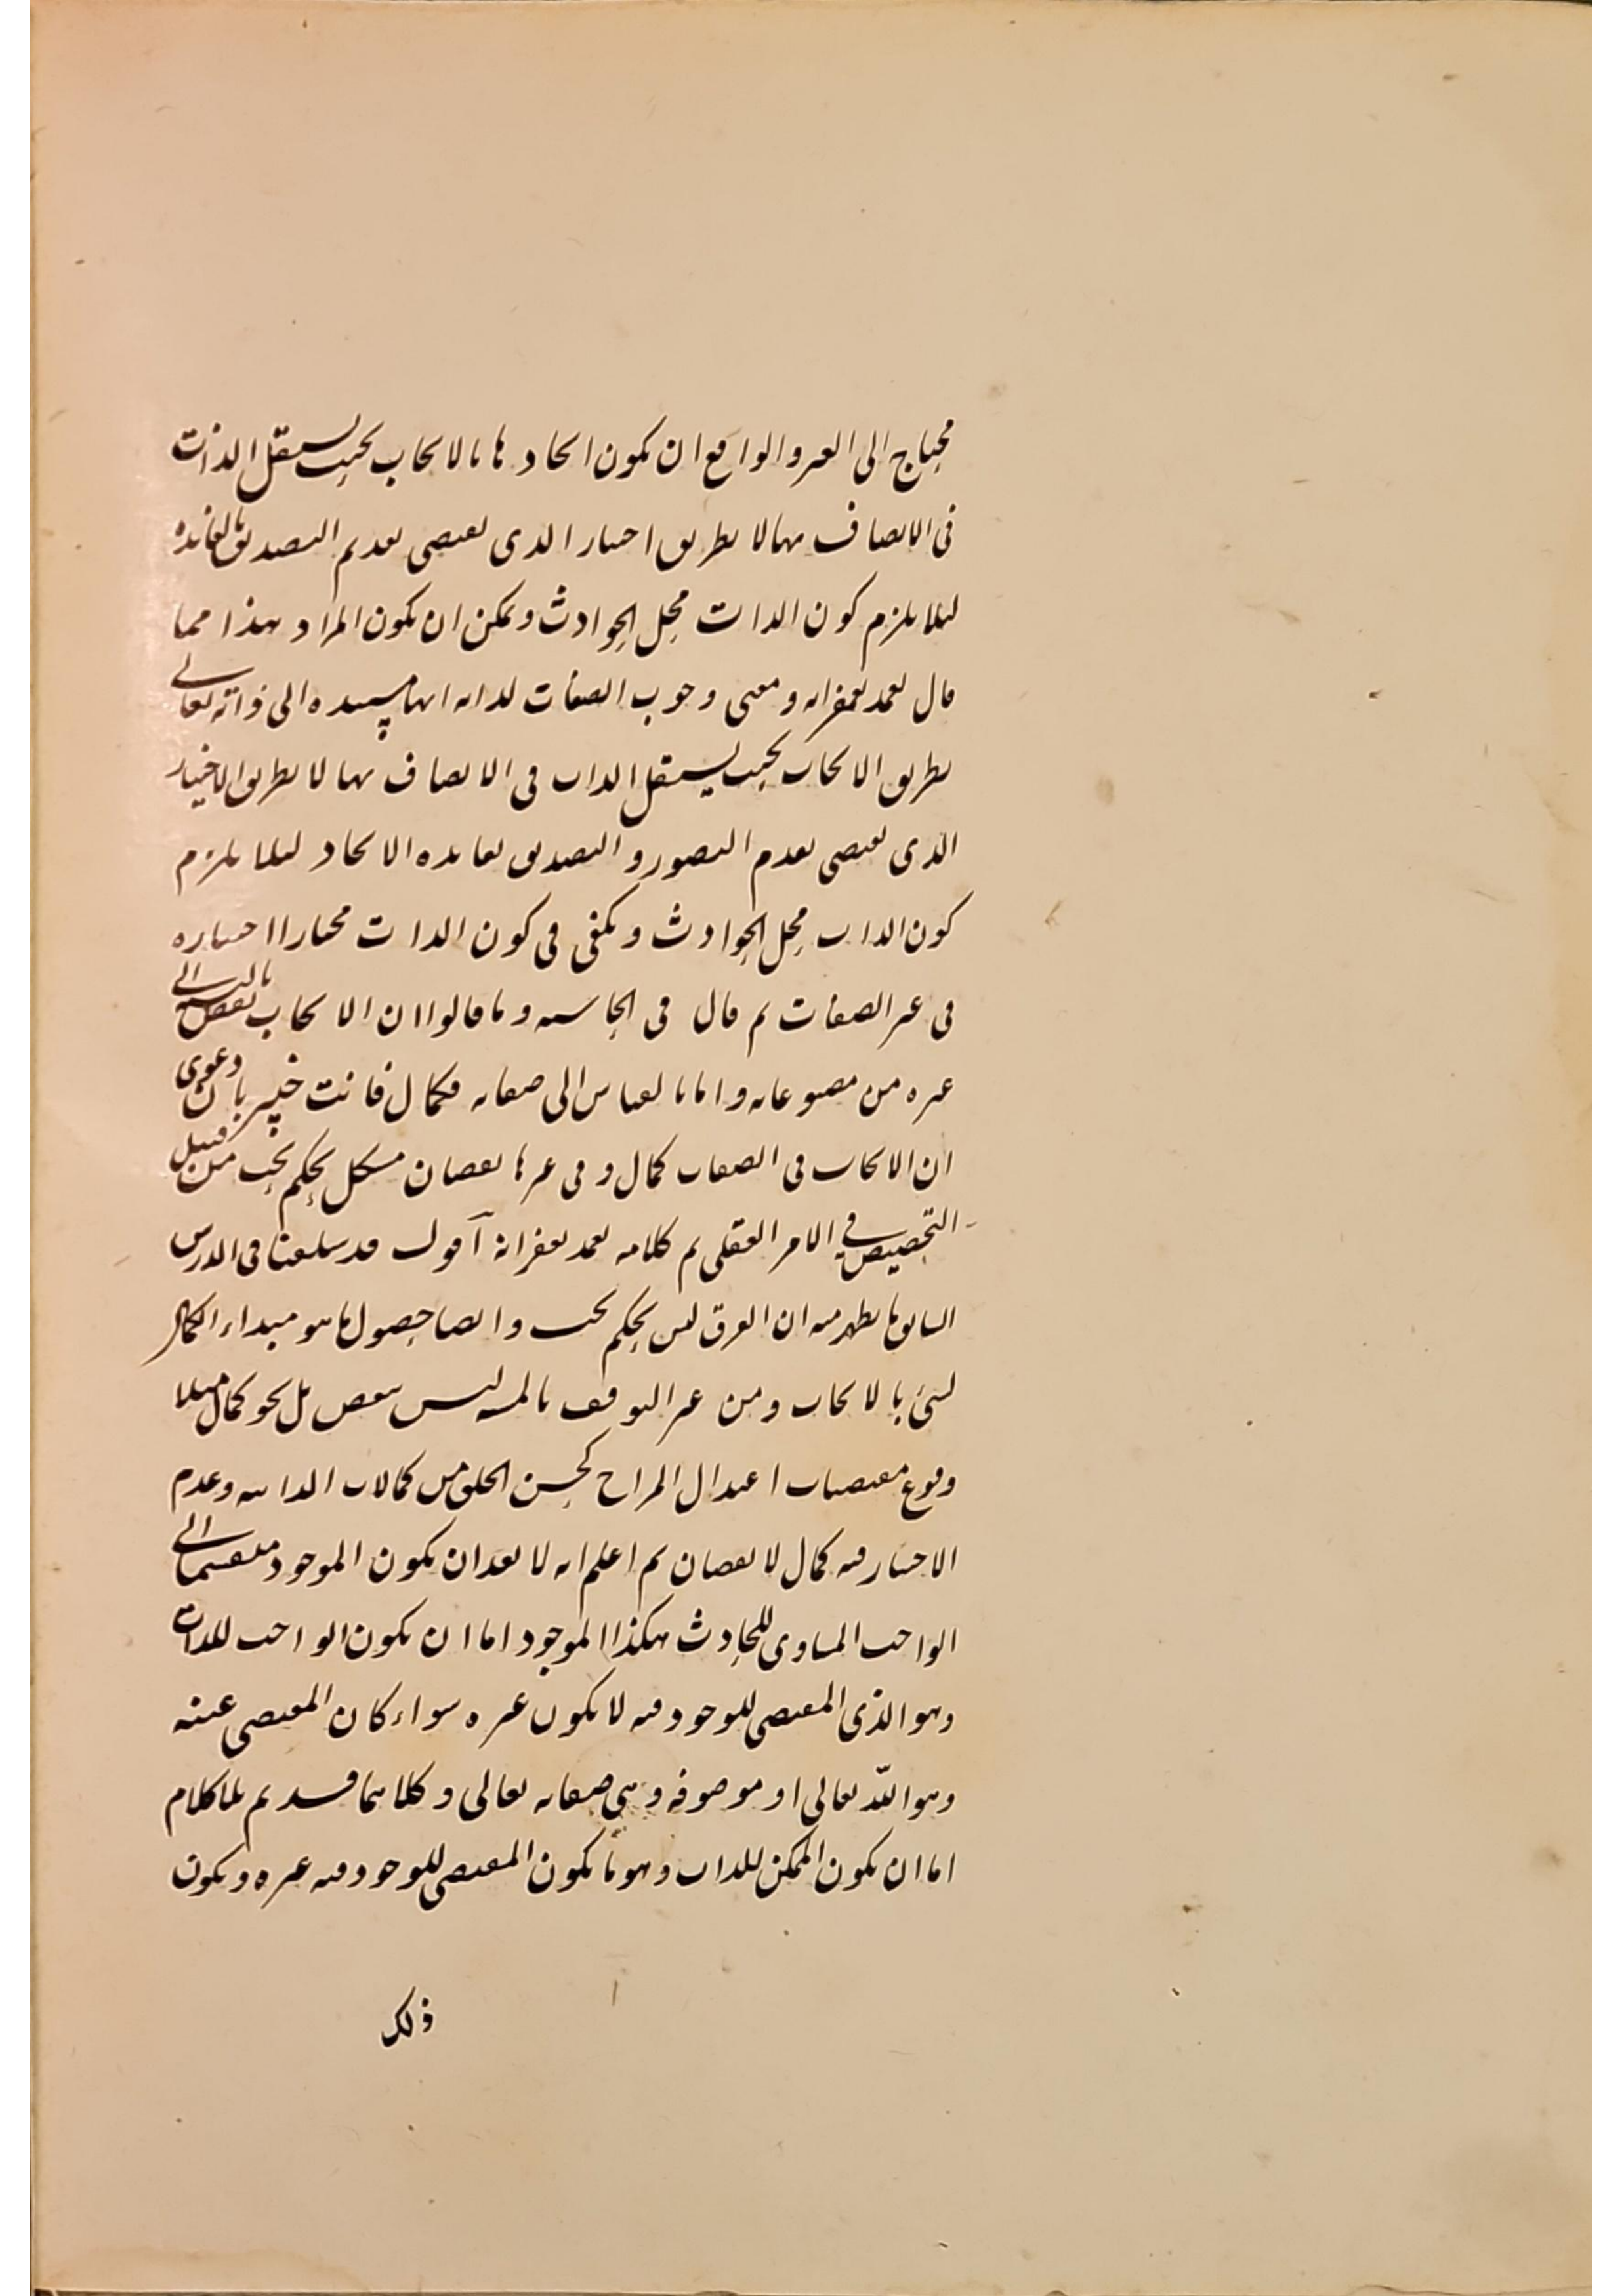 محتاج الى الغير والواقع ان يكون ايجادها بالايجاب بحيث يستقل الذات
فى الاتصاف بها لا بطريق اختيار الذى يقتضى تقدم التصديق بالفائدة
لئلا يلزم كون الذات محل الحوادث ويمكن ان يكون المراد بهذا مما
قال تغمد بغفرانه ومعنى وجوب الصفات لذاته انها مستندة الى ذاته تعالى
بطريق الايجاب بحيث يستقل الذات فى الاتصاف بها لا بطريق الاختيار
الذى يقتضى تقدم التصور والتصديق بفائدة الايجاد لئلا يلزم
كون الذات محل الحوادث ويكفى فى كون الذات مختارا اختياره
فى غير الصفات ثم قال فى الحاشية وما قالوا ان الايجاب نقص بالنسبة الى
غيره من مصنوعاته واما بالقياس الى صفاته فكمال فانت خبير بان دعوى
ان الايجاب فى الصفات كمال وفى غيرها نقصان مشكل بحكم بحت من قبيل
التخصيص فى الامر العقلى ثم كلامه تغمد بغفرانه آقول قد سلفنا فى الدرس
السابق ما يظهر منه ان الفرق ليس بحكم بحت وايضا حصول ما هو مبداء الكمال
لشئ بالايجاب ومن غير التوقف بالمشية ليس بنقص بل نحو كمال مثلا
وقوع مقتضيات اعتدال المزاج كحسن الخلق من كمالات الذاتية وعدم
الاختيار فيه كمال لا نقصان ثم اعلم انه لا بعد ان يكون الموجود منقسما الى
الواجب المساوى للحادث هكذا الموجود اما ان يكون الواجب للذات
وهو الذى المقتضى للوجود فيه لا يكون غيره سواء كان المقتضى عينه
وهو الله تعالى او موصوفه وهى صفاته تعالى وكلاهما قديم بلا كلام
اما ان يكون الممكن للذات وهو ما يكون المقتضى للوجود فيه غيره ويكون
ذلك